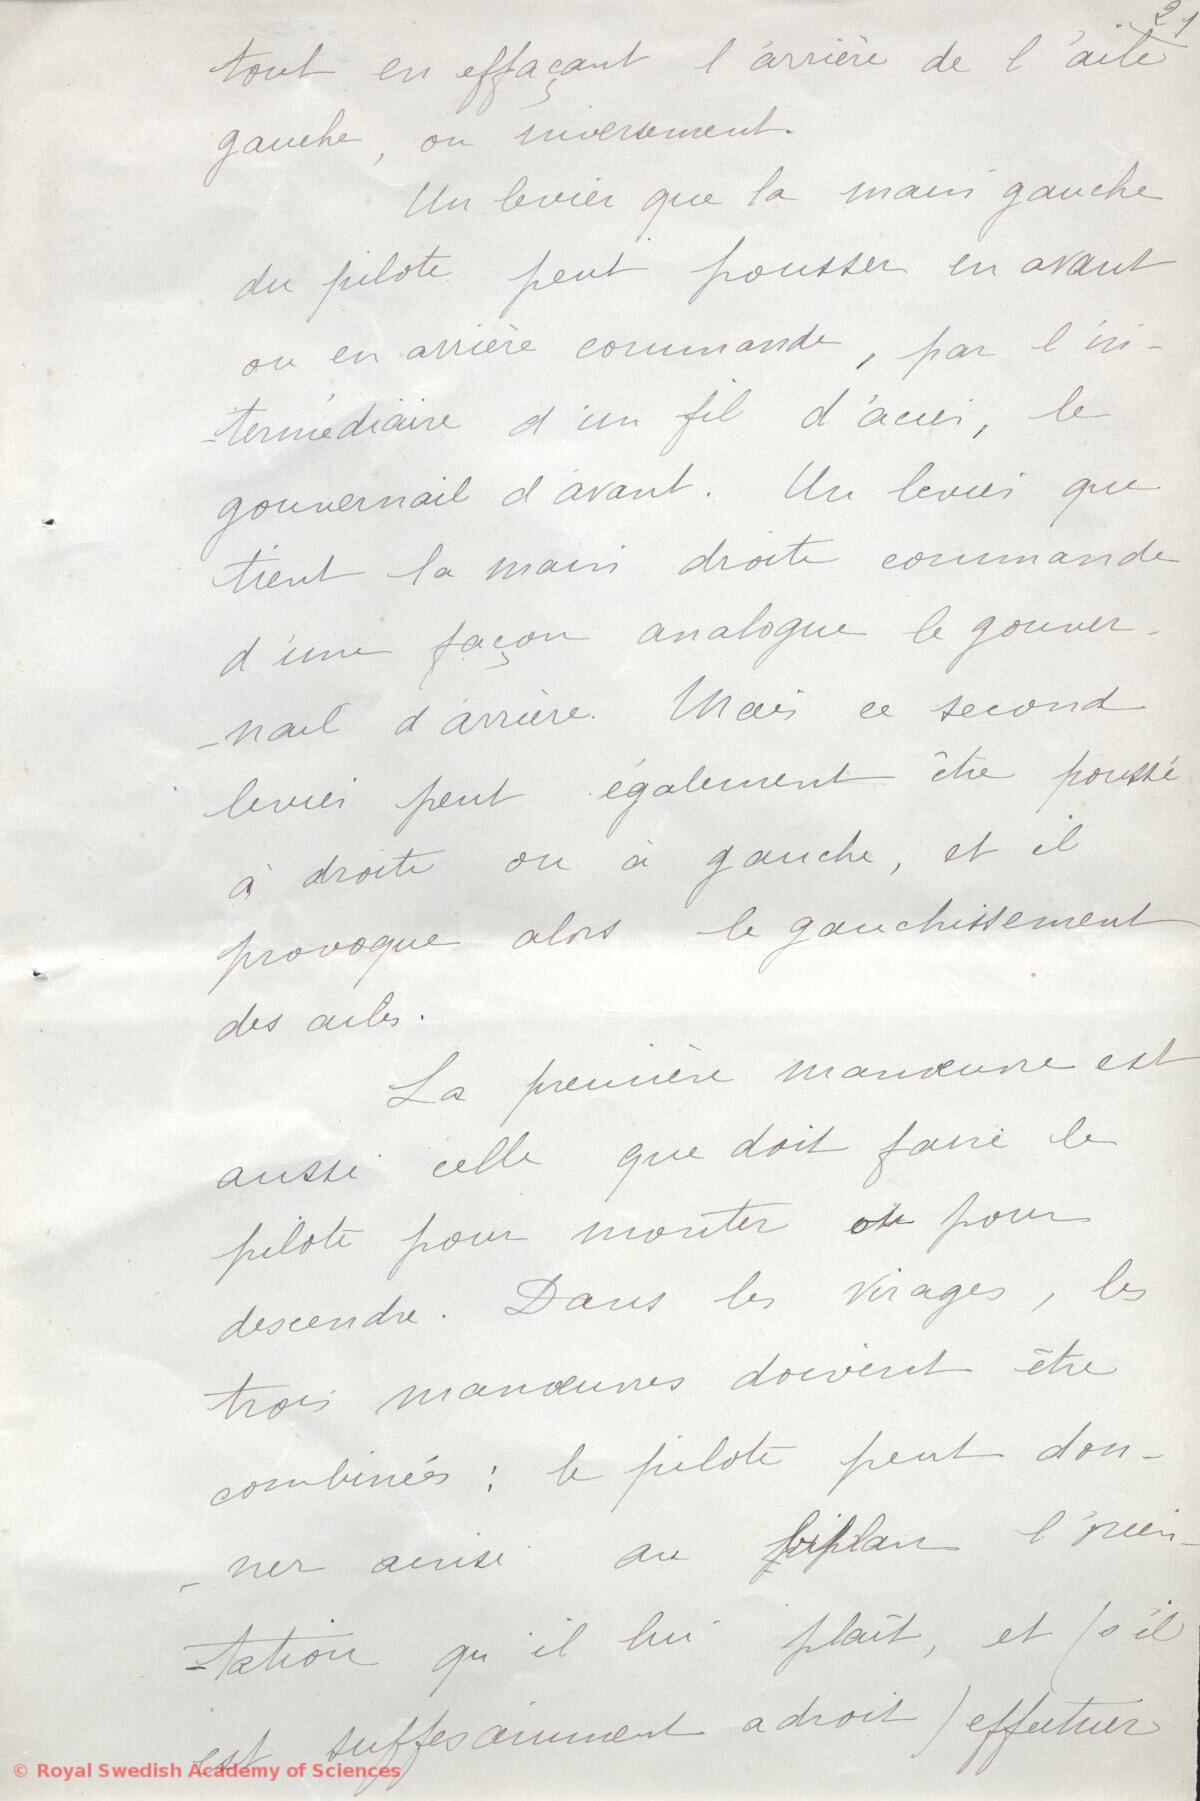 21
tout en effaçant l'arrière de l'aile
gauche, ou inversement.
Un levier que la main gauche
du pilote peut pousser en avant
ou en arrière commande, par l'in-
-termédiaire d'un fil d'acier, le
gouvernail d'avant. Un levier que
tient la main droite commande
d'une façon analogue le gouver-
-nail d'arrière. Mais ce second
levier peut également être poussé
à droite ou à gauche, et il
provoque alors le gauchissement
des ailes.
La première manœuvre est
aussi celle que doit faire le
pilote pour monter ou pour
descendre. Dans les virages, les
trois manœuvres doivent être
combinées : le pilote peut don-
-ner ainsi au biplan l'orien-
-tation qu'il lui plaît, et (s'il
est suffisamment adroit) effectuer
© Royal Swedish Academy of Sciences